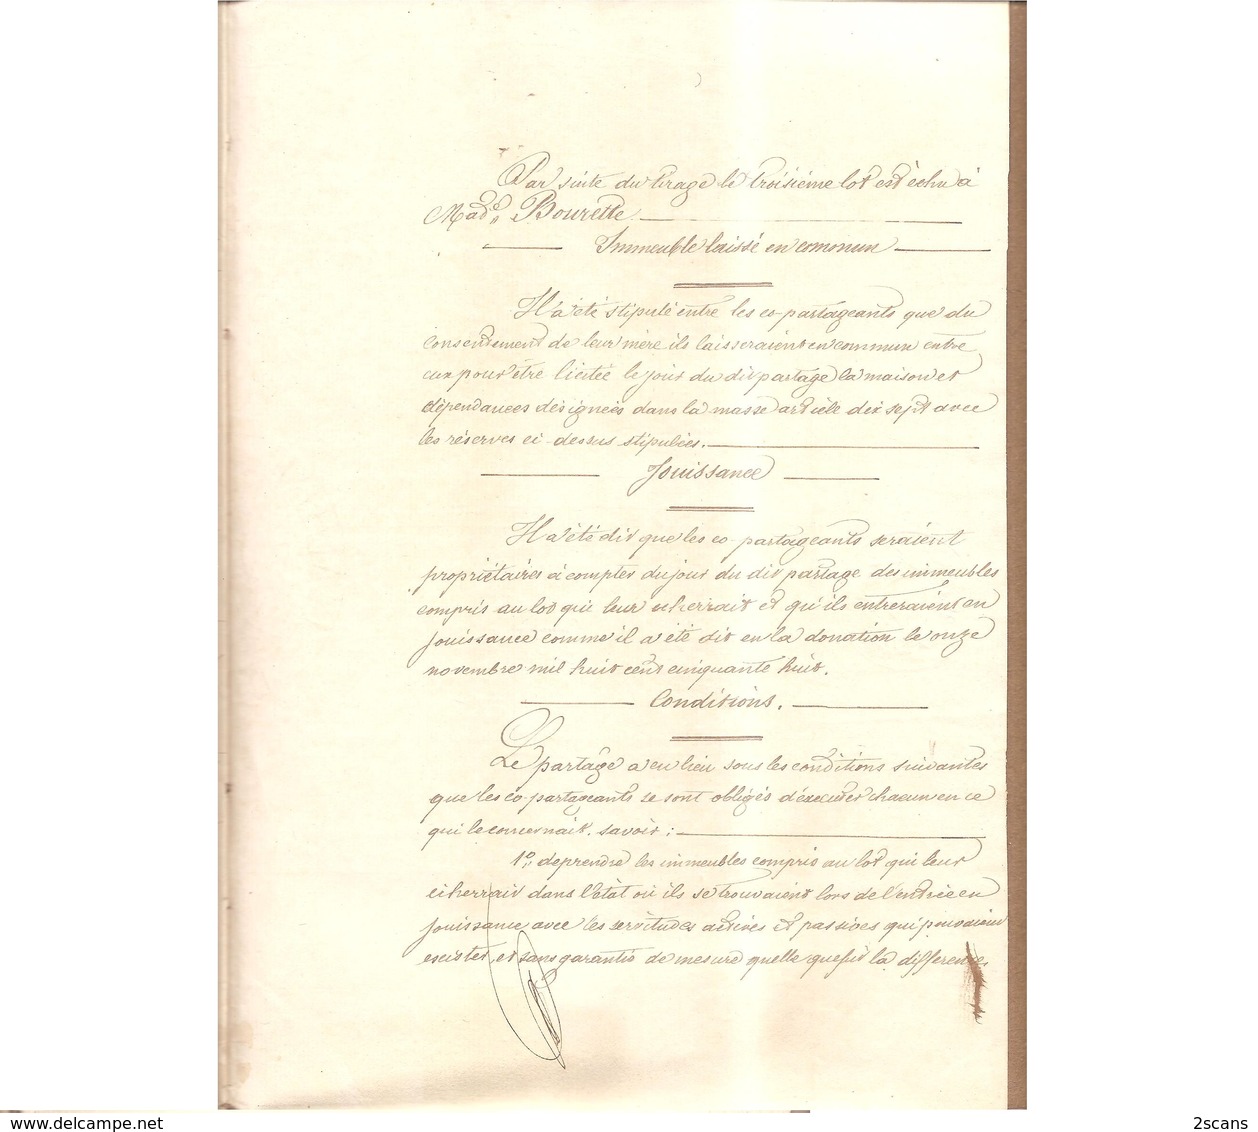 Par suite du tirage le troisième lot est échu à
Made Bourette.
Immeuble laissé en commun
Il a été stipulé entre les co-partageants que du
consentement de leur mère ils laisseraient en commun entre
eux pour être licitée le jour du dit partage la maison et
dépendances désignées dans la masse article dix sept avec
les réserves ci-dessus stipulées.
Jouissance
Il a été dit que les co partageants seraient
propriétaires à compter du jour du dit partage des immeubles
compris au lot qui leur écherrait et qu'ils entreraient en
jouissance comme il a été dit en la donation le onze
novembre mil huit cent cinquante huit.
Conditions.
Le partage a eu lieu sous les conditions suivantes
que les co-partageants se sont obligés d'exécuter chacun en ce
qui le concernait, savoir :
1° de prendre les immeubles compris au lot qui leur
écherrait dans l'état où ils se trouvaient lors de l'entrée en
jouissance avec les servitudes actives et passives qui pouvaient
exister, et sans garantie de mesure quelle que fut la différence
delcampe.net
2scans